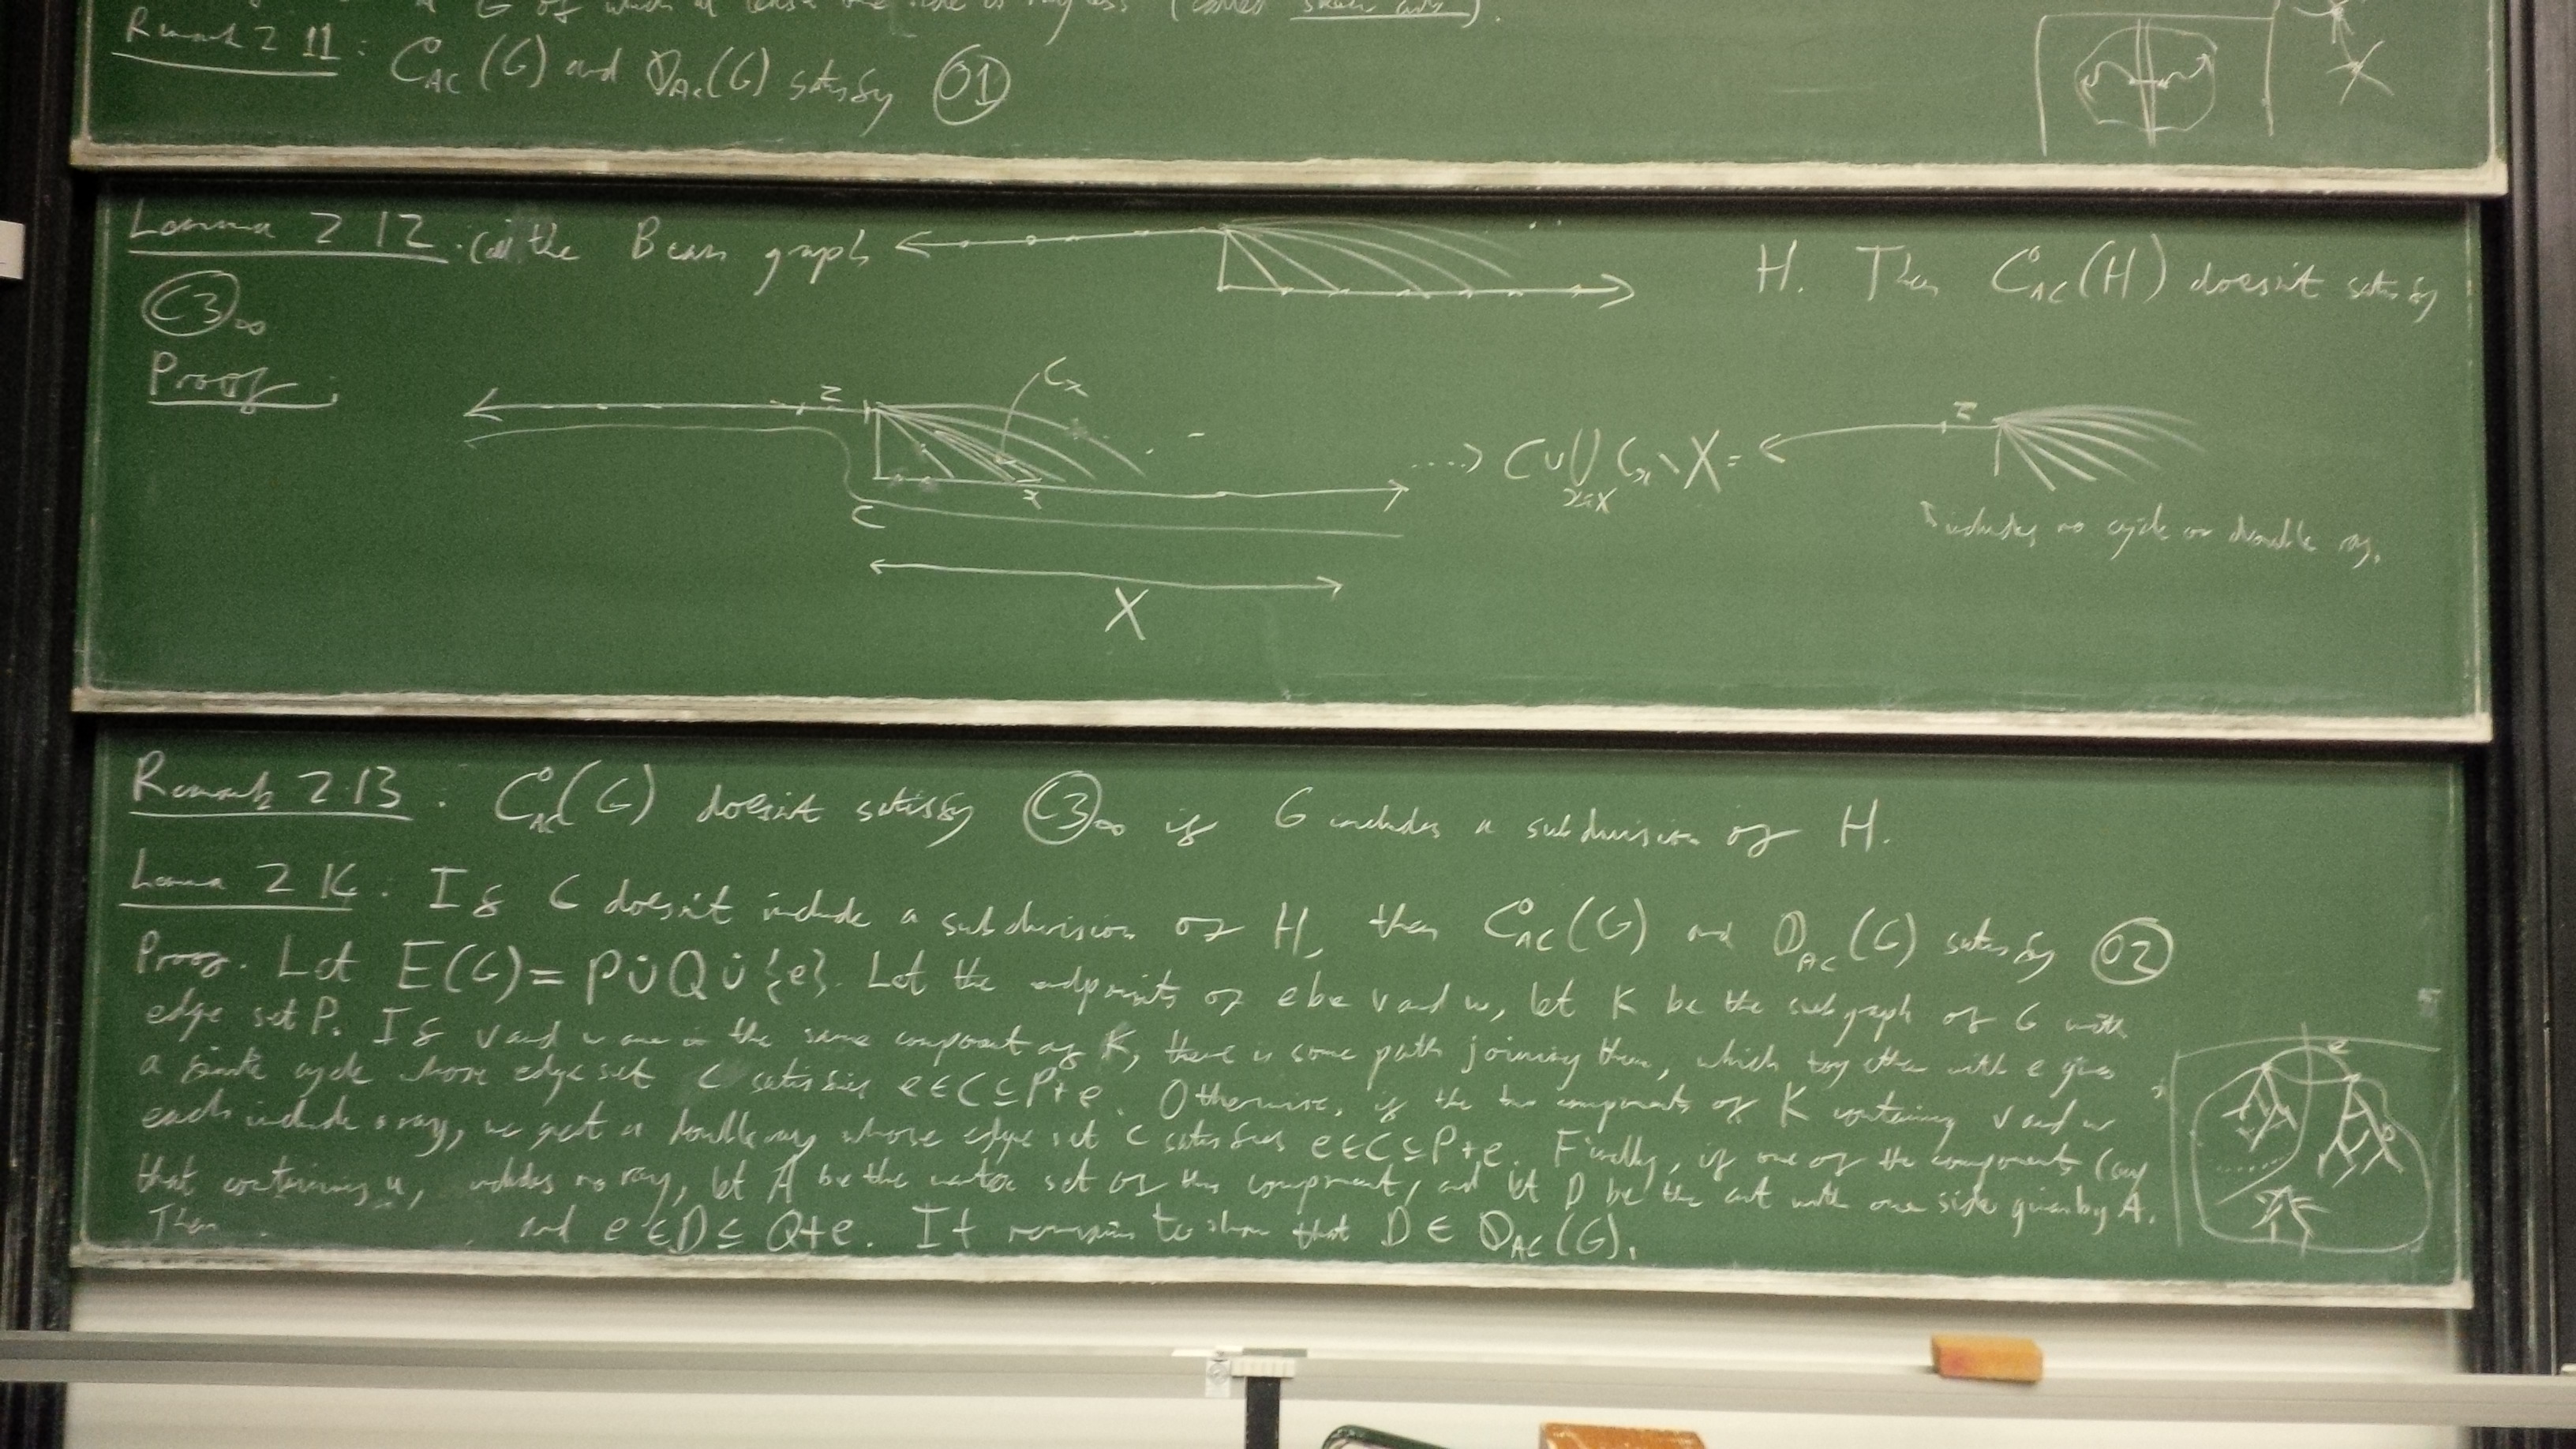 G of which at least one side is rayless (called skew cuts).
Remark 2 11: C°_AC (G) and D_AC (G) satisfy (O1)
Lemma 2 12: Call the Bean graph H. Then C°_AC (H) doesn't satisfy
(C3)∞
Proof:
z C_x x C X
....> C ∪ ⋃_{x∈X} C_x \ X = z
↑ includes no cycle or double ray.
Remark 2.13. C°_AC (G) doesn't satisfy (C3)∞ if G includes a subdivision of H.
Lemma 2 14. If G doesn't include a subdivision of H, then C°_AC (G) and D_AC (G) satisfy (O2)
Proof. Let E(G) = P ∪̇ Q ∪̇ {e}. Let the endpoints of e be v and w, let K be the subgraph of G with
edge set P. If v and w are in the same component of K, there is some path joining them, which together with e gives
a finite cycle whose edge set C satisfies e ∈ C ⊆ P+e. Otherwise, if the two components of K containing v and w
each include a ray, we get a double ray whose edge set C satisfies e ∈ C ⊆ P+e. Finally, if one of the components (say
that containing v, includes no ray, let A be the vertex set of this component, and let D be the cut with one side given by A.
Then and e ∈ D ⊆ Q+e. It remains to show that D ∈ D_AC (G).
e